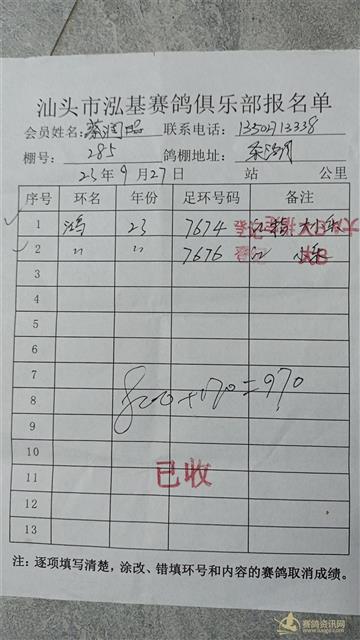 汕头市泓基赛鸽俱乐部报名单
会员姓名: 蔡润昭 联系电话: 13502713338
棚号: 285 鸽棚地址:
23年9月27日 站 公里
序号 环名 年份 足环号码 备注
1 鸿 23 7674
2 〃 〃 7676
3
4
5
6
7
8
9
10
11
12
13
800+170=970
已收
注: 逐项填写清楚, 涂改、错填环号和内容的赛鸽取消成绩。
赛鸽资讯网